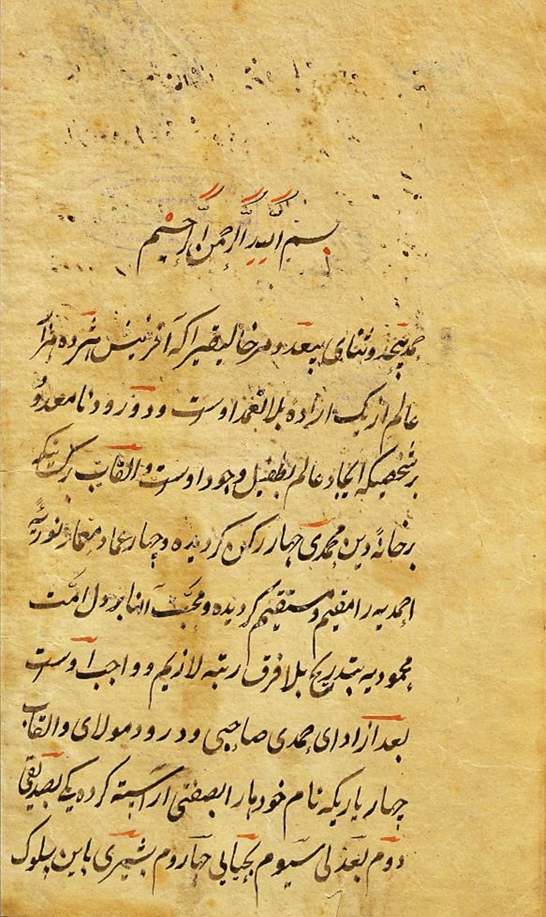 بسم الله الرحمن الرحیم
حمد بیحد و ثنای بیعدد مر خالیقیرا که آفرنیش هژده هزار
عالم از یک اراده بلا تعمد اوست و درود نامعدود
بر شخصیکه ایجاد عالم بطفیل وجود اوست و القاب
بر خانهٔ دین محمدی چهار رکن کردیده و چهار عماد معمار نوریه
احمدیه را مقیم و مستقیم کردیده و محبت آنها بر دل امت
محمودیه بتدریج بلا فرق رتبه لازیم و واجب اوست
بعد از ادای حمدی صاحبی و درود مولای و القاب
چهار یاریکه نام خودها را بصفتی آراسته کرده یکی بصدیقی
دوم بعدلی سیوم بحیایی چهاروم بشیری باین سلوک